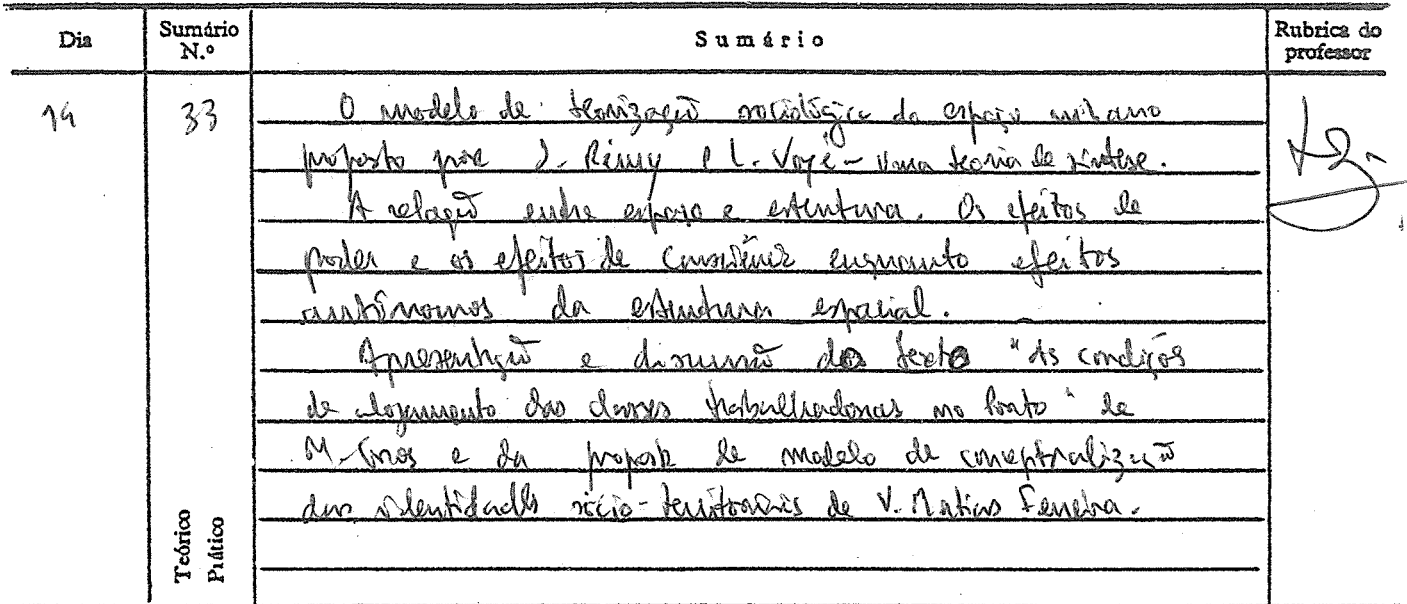 Dia Sumário N.º Sumário Rubrica do professor
14 33 O modelo de teorização sociológica do espaço urbano
proposto por J. Rémy e L. Voyé - uma teoria de síntese.
A relação entre espaço e estrutura. Os efeitos de
poder e os efeitos de consciência enquanto efeitos
autónomos da estrutura espacial.
Apresentação e discussão do texto "As condições
de alojamento das classes trabalhadoras no Porto" de
M. e da proposta de modelo de conceptualização
das identidades sócio-territoriais de V. Matias Ferreira.
Teórico
Prático